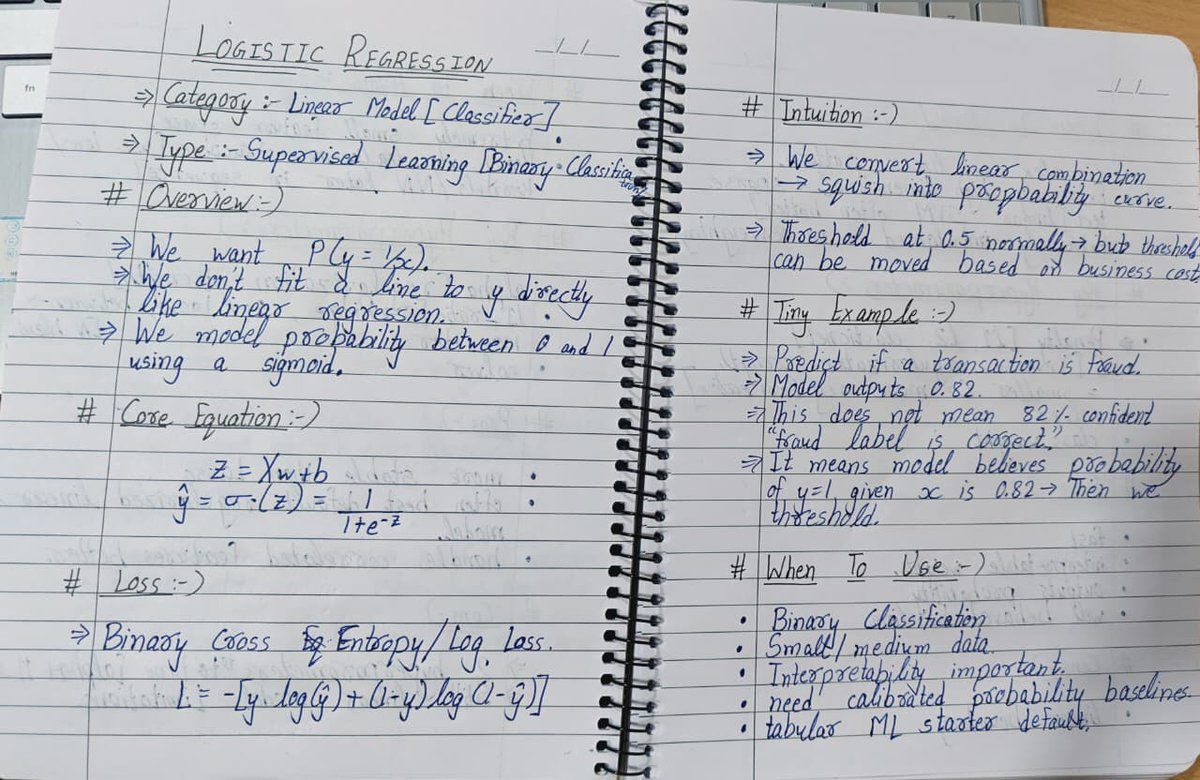 LOGISTIC REGRESSION
⇒ Category :- Linear Model [Classifier]
⇒ Type :- Supervised Learning [Binary Classification]
# Overview :-)
⇒ We want P(y = 1/x).
⇒ We don't fit a line to y directly
like linear regression.
⇒ We model probability between 0 and 1
using a sigmoid.
# Core Equation :-)
z = Xw+b
ŷ = σ(z) = 1/(1+e^-z)
# Loss :-)
⇒ Binary Cross Entropy/Log Loss.
L = -[y log(ŷ) + (1-y) log(1-ŷ)]
# Intuition :-)
⇒ We convert linear combination
→ squish into propbability curve.
⇒ Threshold at 0.5 normally → but threshold
can be moved based on business cost
# Tiny Example :-)
⇒ Predict if a transaction is fraud.
⇒ Model outputs 0.82.
⇒ This does not mean 82% confident
"fraud label is correct."
⇒ It means model believes probability
of y=1, given x is 0.82 → Then we
threshold.
# When To Use :-)
• Binary Classification
• Small/medium data.
• Interpretability important.
• need calibrated probability baselines
• tabular ML starter default.
fn